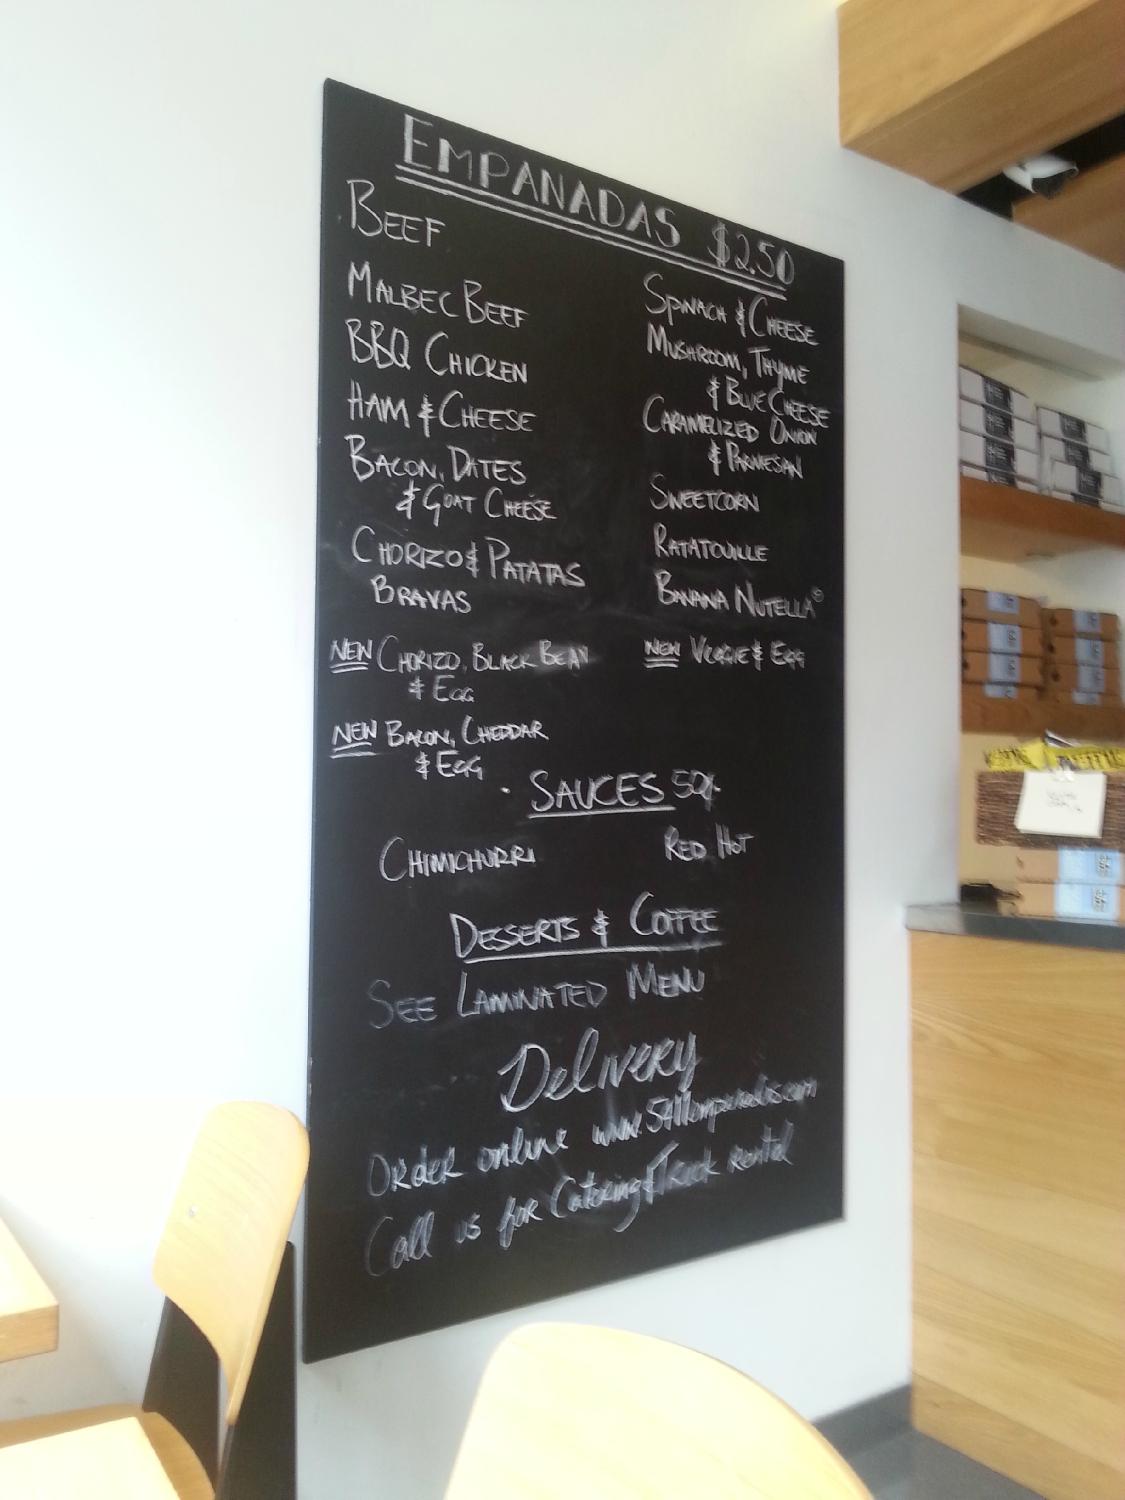 EMPANADAS $2.50
BEEF
MALBEC BEEF
BBQ CHICKEN
HAM & CHEESE
BACON, DATES
& GOAT CHEESE
CHORIZO & PATATAS
BRAVAS
NEW CHORIZO, BLACK BEAN
& EGG
NEW BACON, CHEDDAR
& EGG
SPINACH & CHEESE
MUSHROOM, THYME
& BLUE CHEESE
CARAMELIZED ONION
& PARMESAN
SWEETCORN
RATATOUILLE
BANANA NUTELLA®
NEW VEGGIE & EGG
SAUCES 50¢
CHIMICHURRI
RED HOT
DESSERTS & COFFEE
SEE LAMINATED MENU
Delivery
Order online www.5411empanadas.com
Call us for Catering & Truck rental